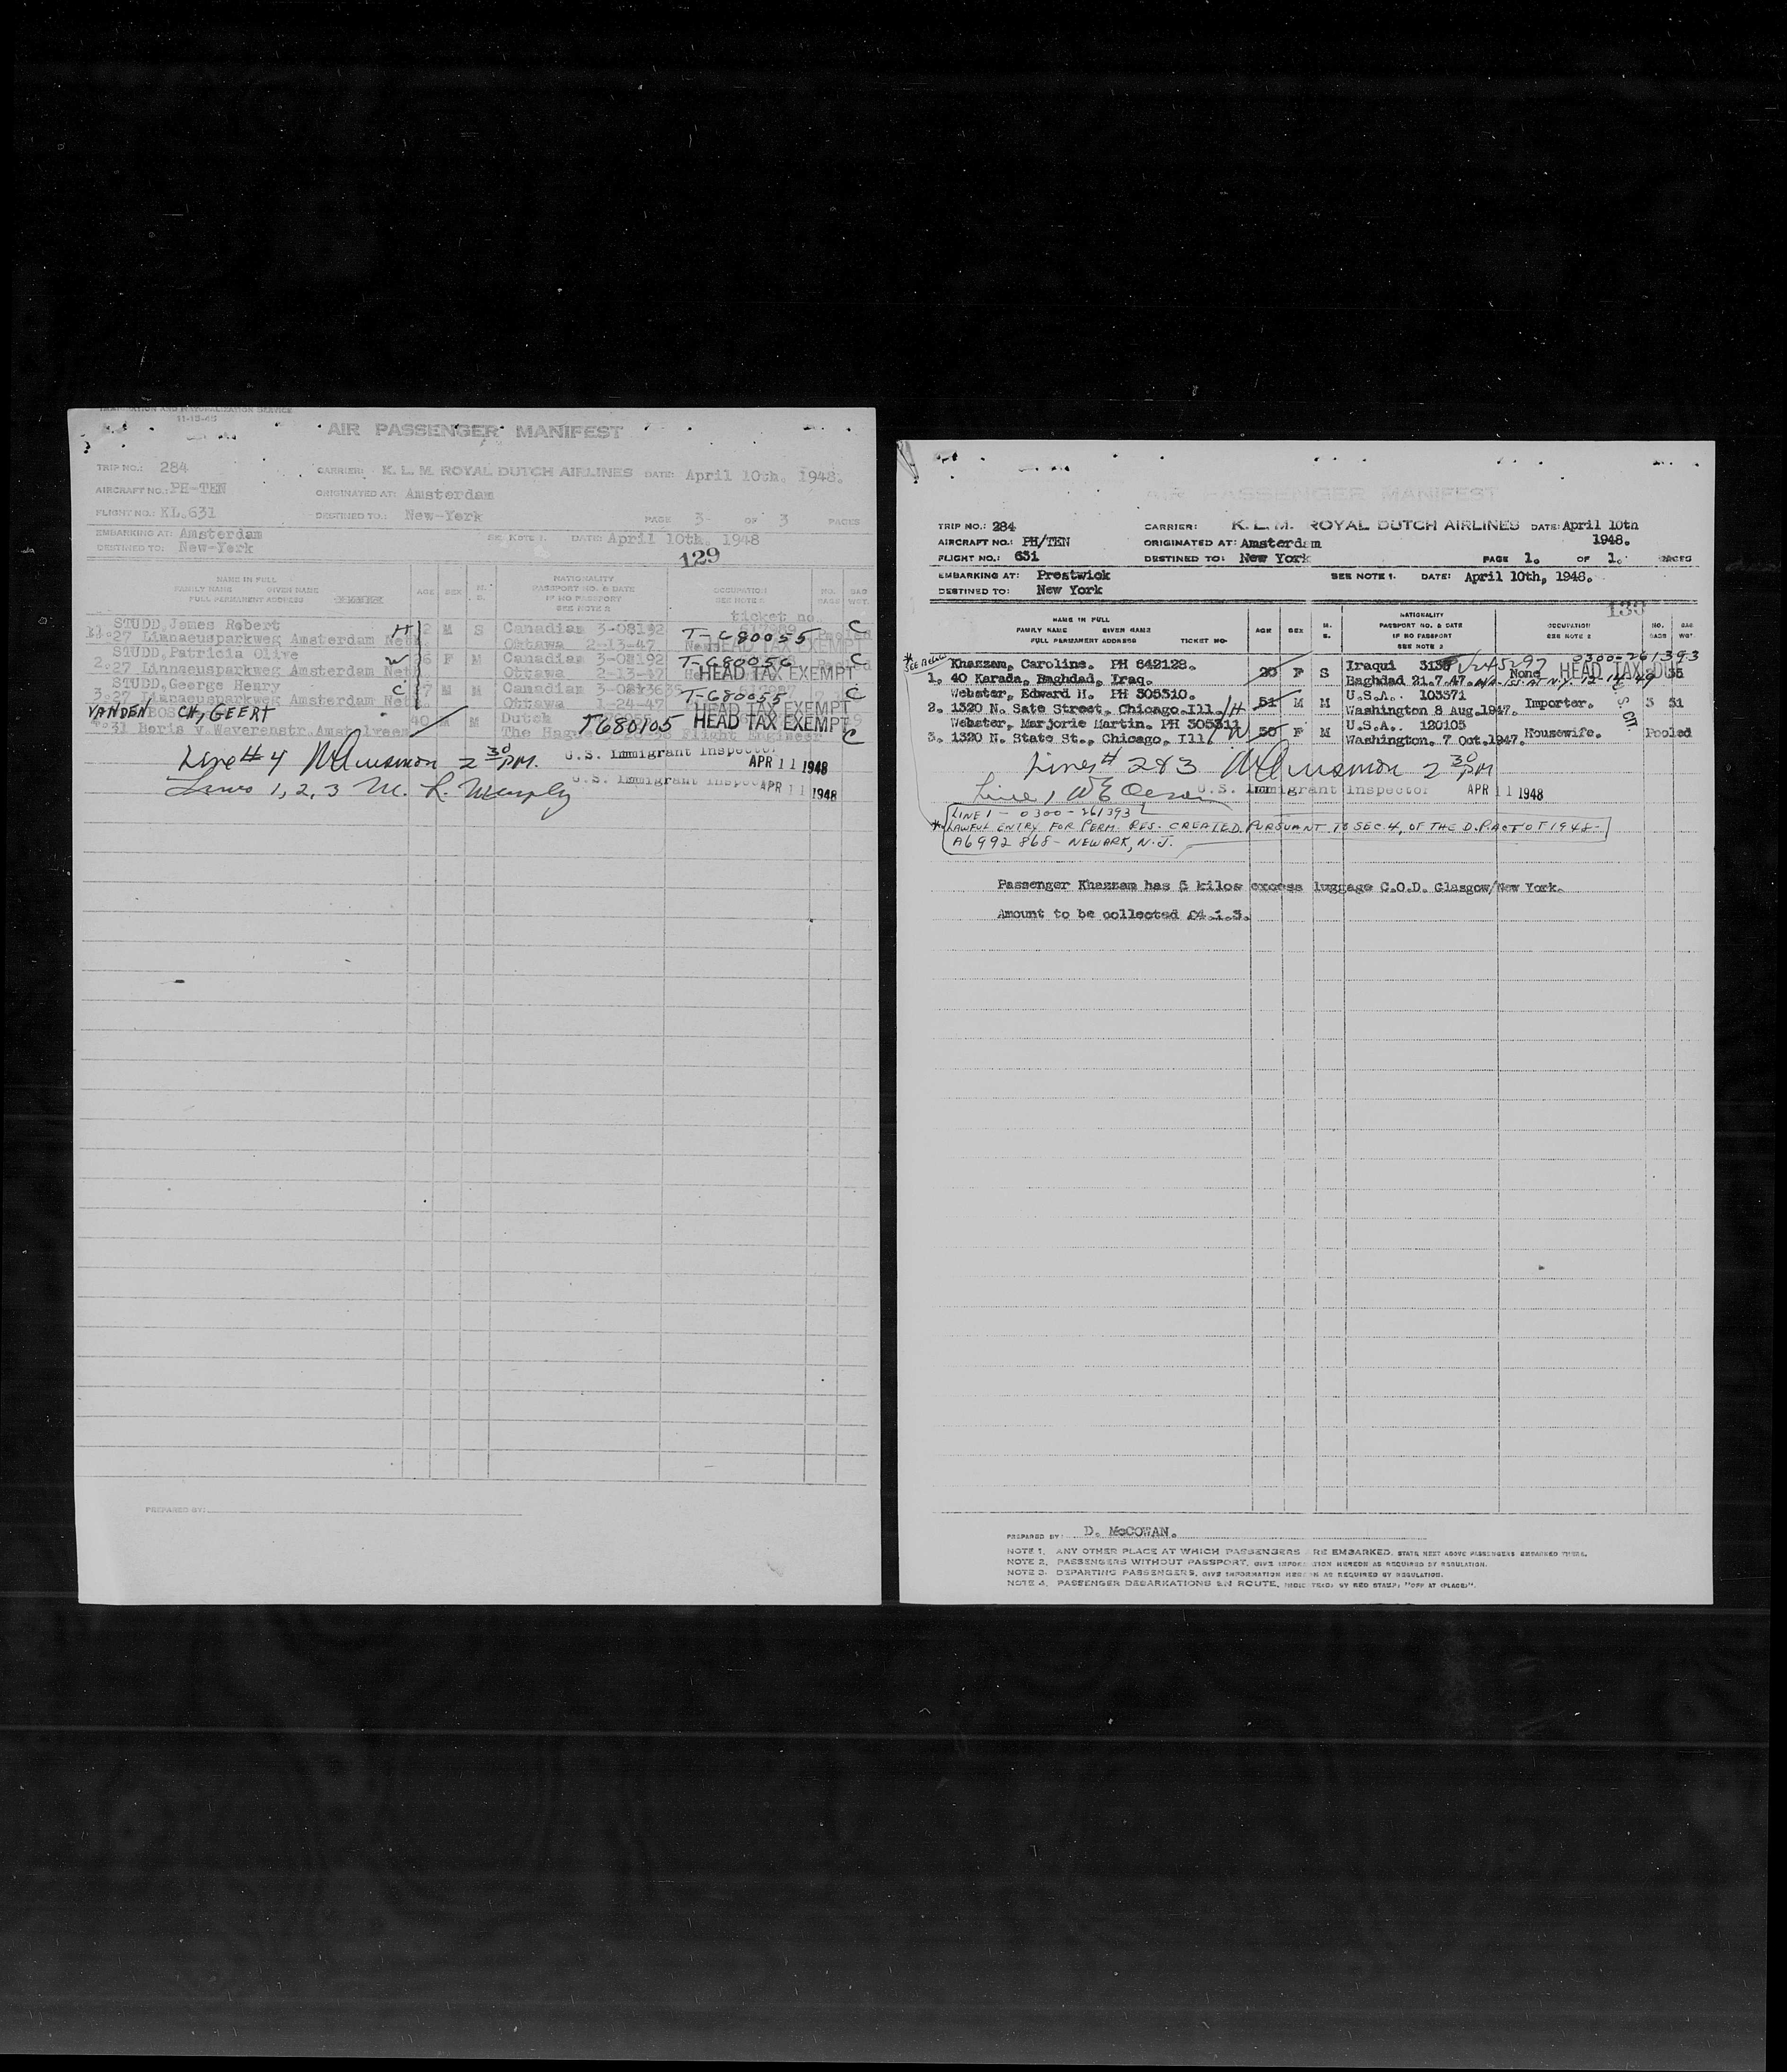 IMMIGRATION AND NATURALIZATION SERVICE
AIR PASSENGER MANIFEST
TRIP NO.: 284 CARRIER: K. L. M. ROYAL DUTCH AIRLINES DATE: April 10th. 1948.
AIRCRAFT NO.: PH-TEN ORIGINATED AT: Amsterdam
FLIGHT NO.: KL.631 DESTINED TO.: New-York PAGE 3- OF 3 PAGES
EMBARKING AT: Amsterdam SEE NOTE 1. DATE: April 10th. 1948
DESTINED TO: New-York
129
NAME IN FULL NATIONALITY
FAMILY NAME GIVEN NAME AGE SEX M. PASSPORT NO. & DATE OCCUPATION NO. BAG
FULL PERMANENT ADDRESS S. IF NO PASSPORT SEE NOTE 2 BAGS WGT.
SEE NOTE 2
ticket no.
STUDD, James Robert H M S Canadian 3-08192 T-680055 C
27 Linnaeusparkweg Amsterdam Neth. Ottawa 2-13-47 HEAD TAX EXEMPT
STUDD, Patricia Olive W F M Canadian 3-08192 T-680056 C
2. 27 Linnaeusparkweg Amsterdam Neth. Ottawa 2-13-47 HEAD TAX EXEMPT
STUDD, George Henry C M M Canadian T-680055 C
3. 27 Linnaeusparkweg Amsterdam Neth. Ottawa 1-24-47 HEAD TAX EXEMPT
VANDEN BOSCH, GEERT 40 M M Dutch T680105 HEAD TAX EXEMPT
4. 31 Boris v. Waverenstr. Amstelveen The Hague Flight Engineer C
Line # 4 2 30 PM. U.S. Immigrant Inspector APR 11 1948
Lines 1, 2, 3 M. L. Murphy U.S. Immigrant Inspector APR 11 1948
PREPARED BY:
AIR PASSENGER MANIFEST
TRIP NO.: 284 CARRIER: K. L. M. ROYAL DUTCH AIRLINES DATE: April 10th
AIRCRAFT NO.: PH/TEN ORIGINATED AT: Amsterdam 1948.
FLIGHT NO.: 631 DESTINED TO: New York PAGE 1. OF 1. PAGES
EMBARKING AT: Prestwick SEE NOTE 1. DATE: April 10th, 1948.
DESTINED TO: New York
130
NAME IN FULL NATIONALITY
FAMILY NAME GIVEN NAME AGE SEX M. PASSPORT NO. & DATE OCCUPATION NO. BAG
FULL PERMANENT ADDRESS TICKET NO. S. IF NO PASSPORT SEE NOTE 2 BAGS WGT.
SEE NOTE 2
* SEE BELOW Khazzam, Caroline. PH 642128. 20 F S Iraqui 0300-261393
1. 40 Karada, Baghdad, Iraq. Baghdad 21.7.47. None HEAD TAX DUE 35
Webster, Edward H. PH 305310. 51 M M U.S.A. 103371
2. 1320 N. Sate Street, Chicago.Ill. H Washington 8 Aug.1947. Importer. 3 31
Webster, Marjorie Martin. PH 305311 50 F M U.S.A. 120105
3. 1320 N. State St., Chicago, Ill. W Washington. 7 Oct.1947. Housewife. Pooled
U.S. CIT.
Lines # 2 & 3 2 30 PM
Line 1 U.S. Immigrant Inspector APR 11 1948
LINE 1 - 0300-261393
* LAWFUL ENTRY FOR PERM. RES. CREATED PURSUANT TO SEC. 4, OF THE D.P. ACT OF 1948-
A6992868 - NEWARK, N.J.
Passenger Khazzam has 5 kilos excess luggage C.O.D. Glasgow/New York.
Amount to be collected £4.1.3.
PREPARED BY: D. McCOWAN.
NOTE 1. ANY OTHER PLACE AT WHICH PASSENGERS ARE EMBARKED, STATE NEXT ABOVE PASSENGERS EMBARKED THERE.
NOTE 2. PASSENGERS WITHOUT PASSPORT, GIVE INFORMATION HEREON AS REQUIRED BY REGULATION.
NOTE 3. DEPARTING PASSENGERS, GIVE INFORMATION HEREON AS REQUIRED BY REGULATION.
NOTE 4. PASSENGER DEBARKATIONS EN ROUTE, INDICATED BY RED STAMP: "OFF AT (PLACE)".